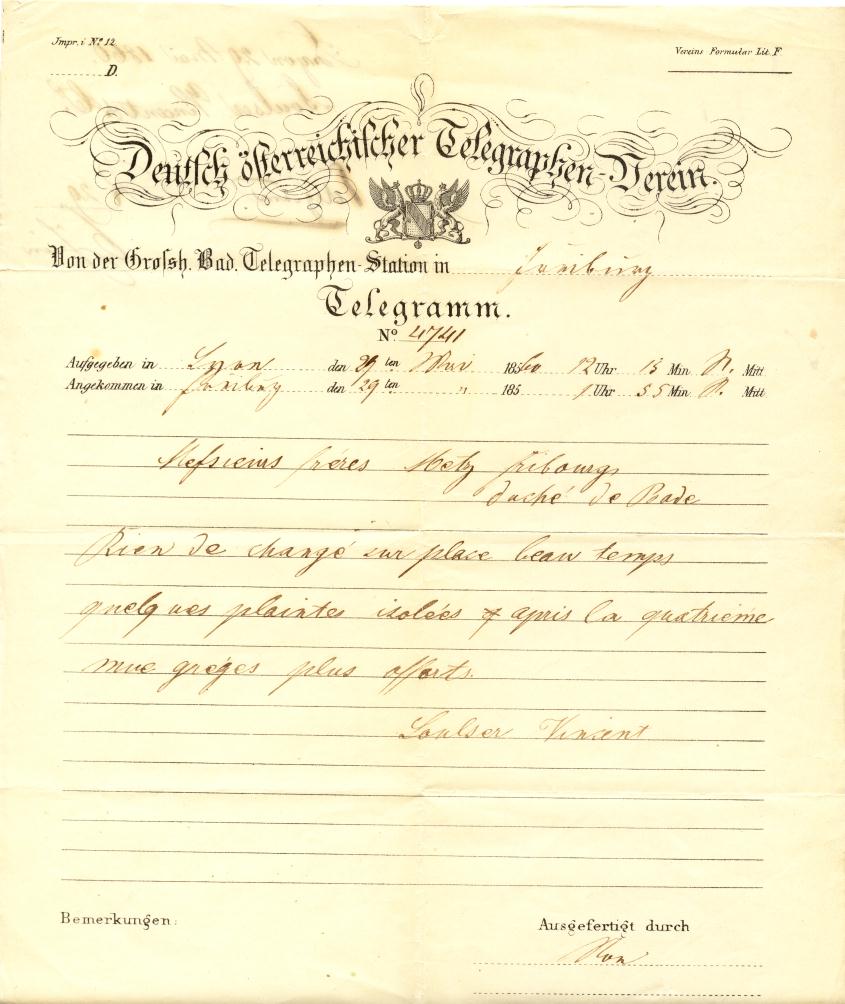 Impr. i Nº 12.
Vereins Formular Lit. F
D.
Deutsch österreichischer Telegraphen-Verein.
Von der Grossh. Bad. Telegraphen-Station in Freiburg
Telegramm.
Nº 4741
Aufgegeben in Lyon den 29 ten Mai 1860 12 Uhr 15 Min N. Mitt
Angekommen in Freiburg den 29 ten " 185 1 Uhr 35 Min N. Mitt
Messieurs fréres Metz fribourg
duché de Bade
Rien de changé sur place beau temps
quelques plaintes isolées apris la quatrieme
mue gréges plus offerts.
Soulser Vincent
Bemerkungen:
Ausgefertigt durch